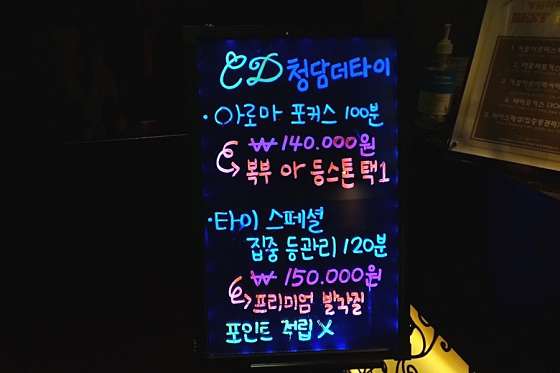 CD 청담더타이
· 아로마 포커스 100분
₩ 140.000원
복부 or 등스톤 택1
· 타이 스페셜
집중 등관리 120분
₩ 150.000원
프리미엄 발각질
포인트 적립 X